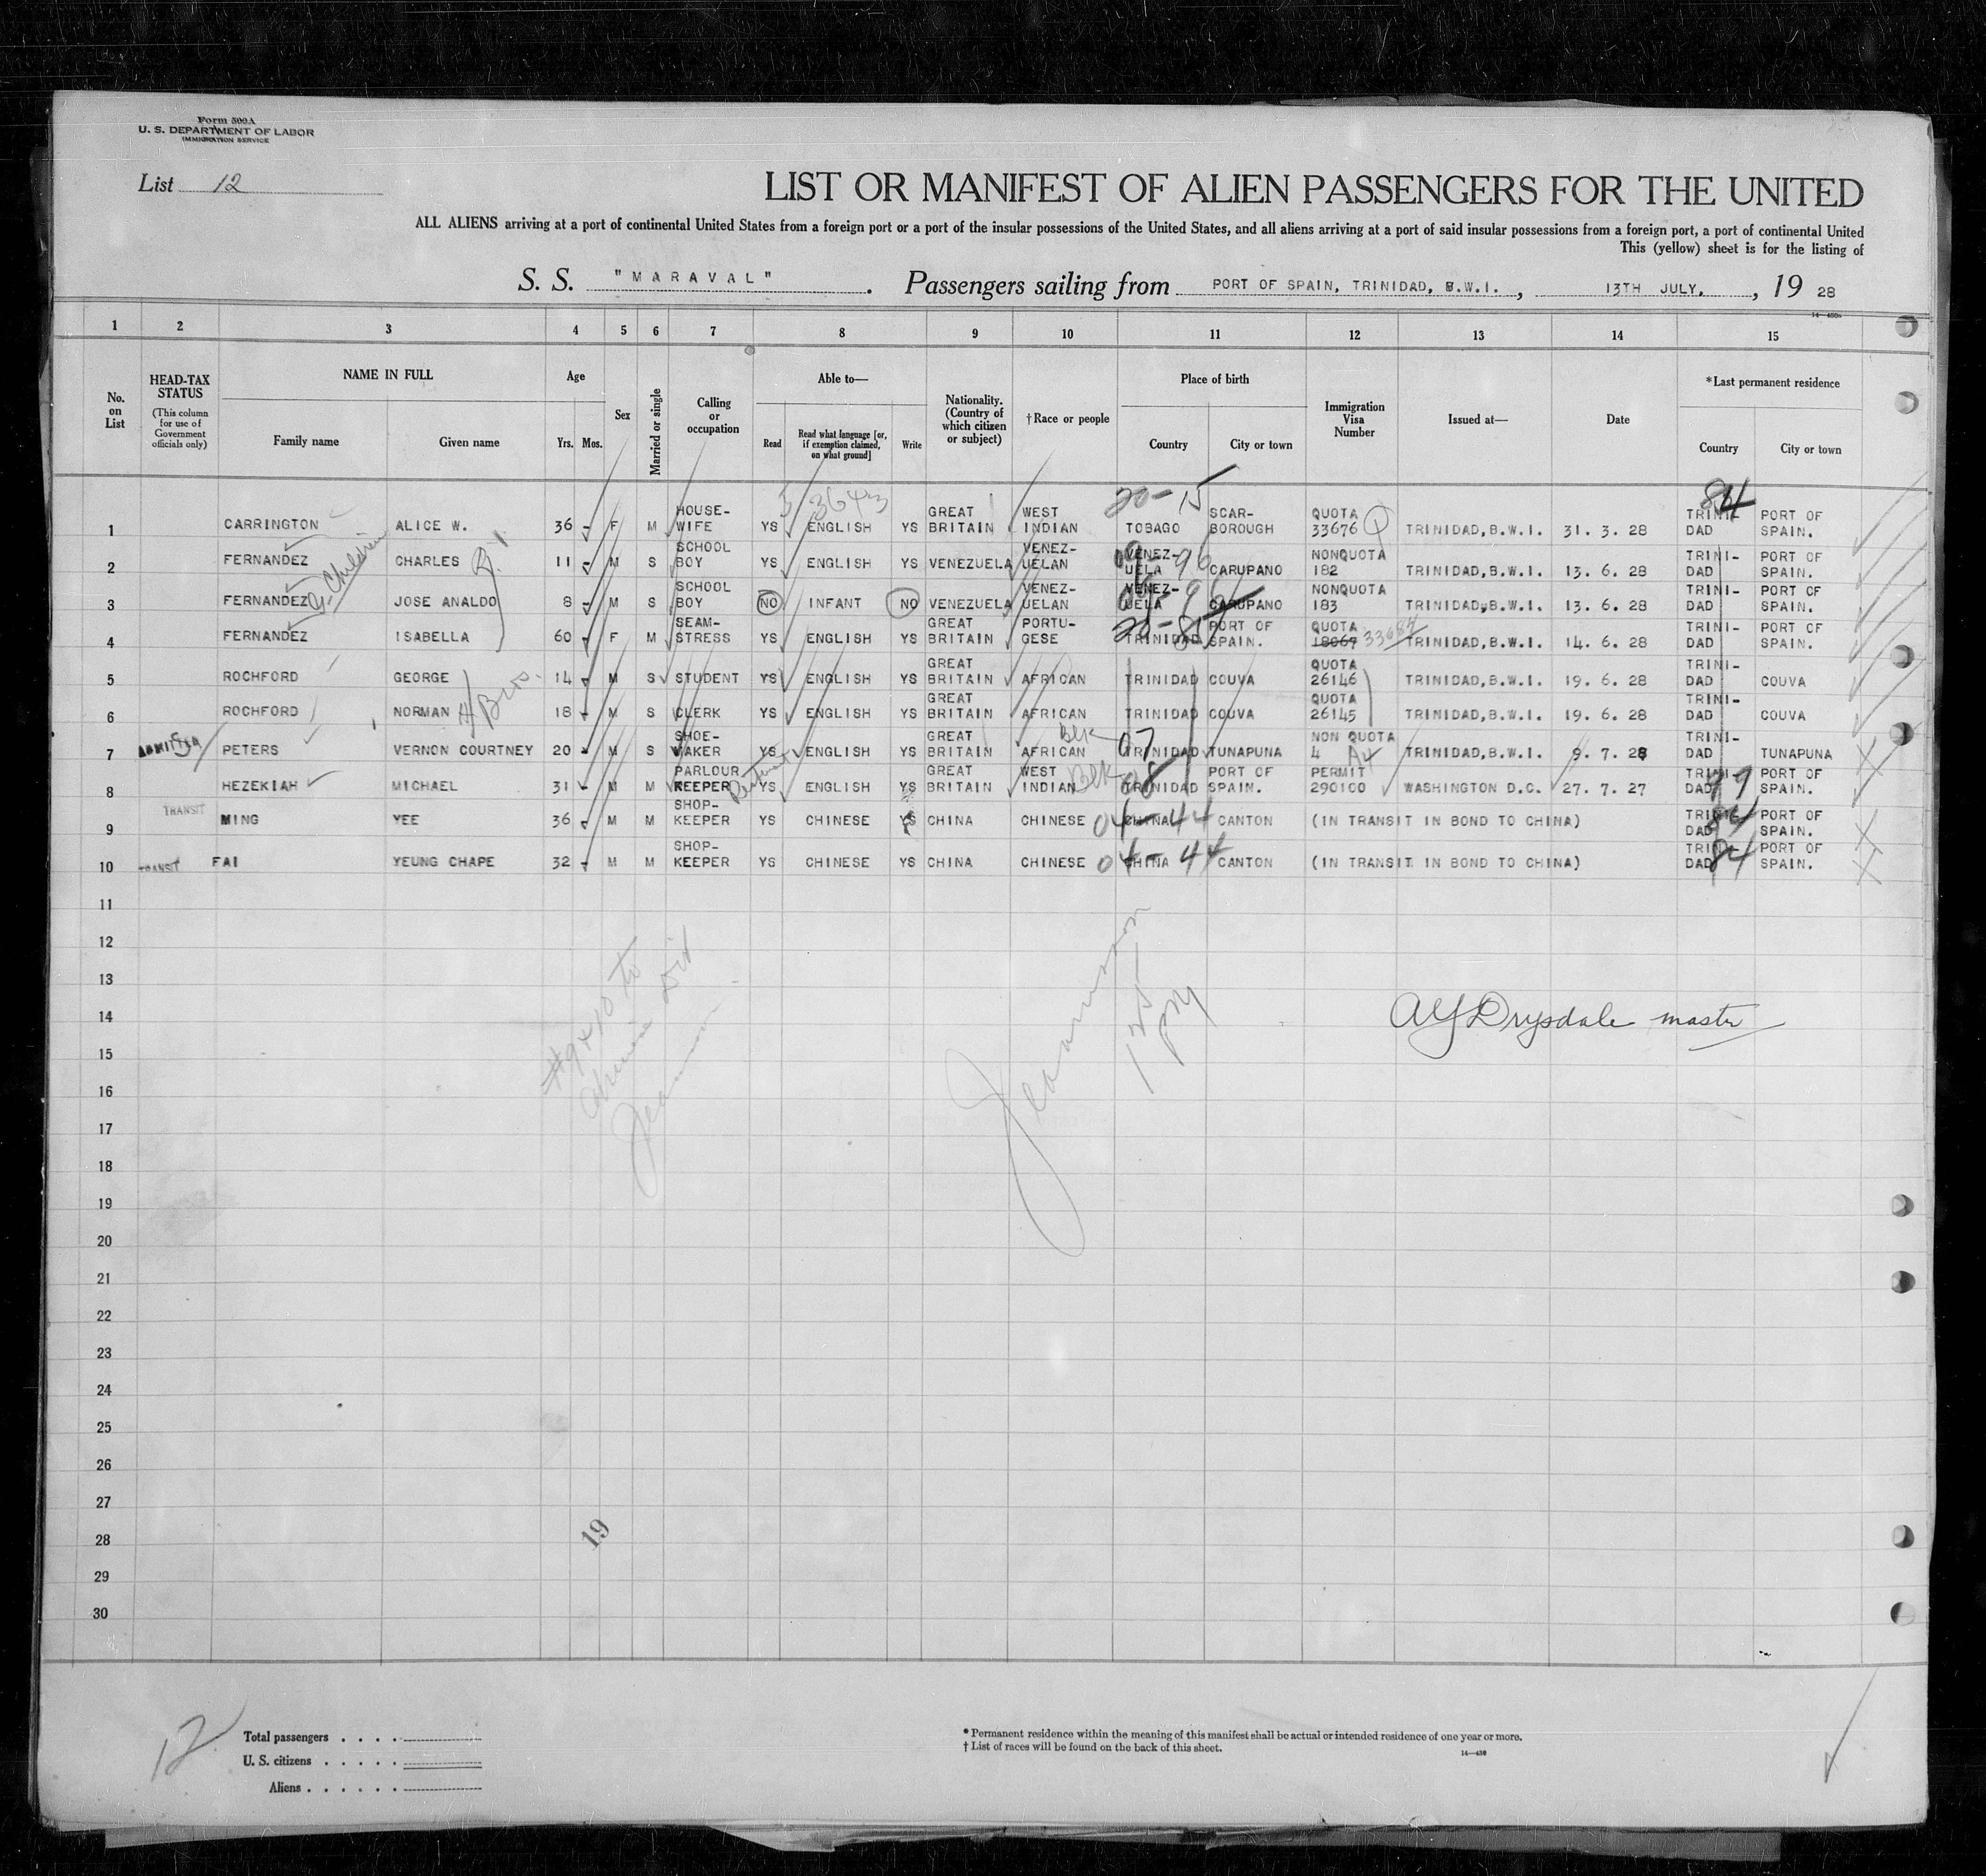 Form 500A
U. S. DEPARTMENT OF LABOR
IMMIGRATION SERVICE
List 12
LIST OR MANIFEST OF ALIEN PASSENGERS FOR THE UNITED
ALL ALIENS arriving at a port of continental United States from a foreign port or a port of the insular possessions of the United States, and all aliens arriving at a port of said insular possessions from a foreign port, a port of continental United
This (yellow) sheet is for the listing of
S. S. "MARAVAL". Passengers sailing from PORT OF SPAIN, TRINIDAD, B.W.I., 13TH JULY, , 19 28
1 2 3 4 5 6 7 8 9 10 11 12 13 14 15
No. on List
HEAD-TAX STATUS (This column for use of Government officials only)
NAME IN FULL
Family name Given name
Age
Yrs. Mos.
Sex
Married or single
Calling or occupation
Able to—
Read Read what language [or, if exemption claimed, on what ground] Write
Nationality. (Country of which citizen or subject)
†Race or people
Place of birth
Country City or town
Immigration Visa Number
Issued at—
Date
*Last permanent residence
Country City or town
1 CARRINGTON ALICE W. 36 F M HOUSE-WIFE YS ENGLISH YS GREAT BRITAIN WEST INDIAN TOBAGO SCAR-BOROUGH QUOTA 33676 Q TRINIDAD,B.W.I. 31. 3. 28 TRINI-DAD PORT OF SPAIN.
20-15
2 FERNANDEZ CHARLES 11 M S SCHOOL BOY YS ENGLISH YS VENEZUELA VENEZ-UELAN VENEZ-UELA CARUPANO NONQUOTA 182 TRINIDAD,B.W.I. 13. 6. 28 TRINI-DAD PORT OF SPAIN.
G. Children
3 FERNANDEZ JOSE ANALDO 8 M S SCHOOL BOY NO INFANT NO VENEZUELA VENEZ-UELAN VENEZ-UELA CARUPANO NONQUOTA 183 TRINIDAD,B.W.I. 13. 6. 28 TRINI-DAD PORT OF SPAIN.
4 FERNANDEZ ISABELLA 60 F M SEAM-STRESS YS ENGLISH YS GREAT BRITAIN PORTU-GESE TRINIDAD PORT OF SPAIN. QUOTA 18067 TRINIDAD,B.W.I. 14. 6. 28 TRINI-DAD PORT OF SPAIN.
5 ROCHFORD GEORGE 14 M S STUDENT YS ENGLISH YS GREAT BRITAIN AFRICAN TRINIDAD COUVA QUOTA 26146 TRINIDAD,B.W.I. 19. 6. 28 TRINI-DAD COUVA
Bros.
6 ROCHFORD NORMAN 18 M S CLERK YS ENGLISH YS GREAT BRITAIN AFRICAN TRINIDAD COUVA QUOTA 26145 TRINIDAD,B.W.I. 19. 6. 28 TRINI-DAD COUVA
7 ADMITTED PETERS VERNON COURTNEY 20 M S SHOE-MAKER YS ENGLISH YS GREAT BRITAIN AFRICAN Blk 07 TRINIDAD TUNAPUNA NON QUOTA 4 TRINIDAD,B.W.I. 9. 7. 28 TRINI-DAD TUNAPUNA
8 HEZEKIAH MICHAEL 31 M M PARLOUR KEEPER YS ENGLISH YS GREAT BRITAIN WEST INDIAN Blk 08 TRINIDAD PORT OF SPAIN. PERMIT 290100 WASHINGTON D.C. 27. 7. 27 TRINI-DAD 99 PORT OF SPAIN.
9 TRANSIT MING YEE 36 M M SHOP-KEEPER YS CHINESE YS CHINA CHINESE 04-44 CHINA CANTON (IN TRANSIT IN BOND TO CHINA) TRINI-DAD 84 PORT OF SPAIN.
10 TRANSIT FAI YEUNG CHAPE 32 M M SHOP-KEEPER YS CHINESE YS CHINA CHINESE 04-44 CHINA CANTON (IN TRANSIT IN BOND TO CHINA) TRINI-DAD 84 PORT OF SPAIN.
11
12
13
14 AYDrysdale master
15
16
17
18
19
20
21
22
23
24
25
26
27
28
29
30
#9 & 10 to
19
12
Total passengers
U. S. citizens
Aliens
* Permanent residence within the meaning of this manifest shall be actual or intended residence of one year or more.
† List of races will be found on the back of this sheet.
14—430